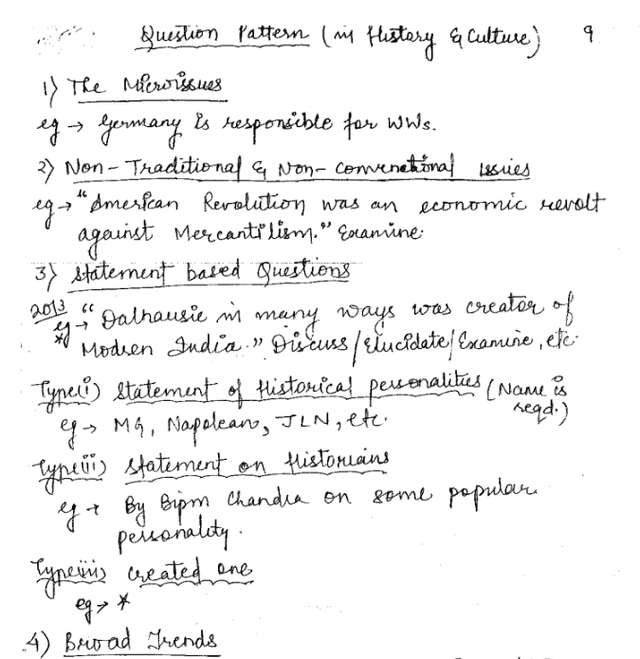 Question Pattern (in History & Culture) 9
1) The Microissues
eg → Germany is responsible for WWs.
2) Non-Traditional & Non-Convenctional Issues
eg → "American Revolution was an economic revolt
against Mercantilism." Examine.
3) Statement based Questions
2013 eg → "Dalhausie in many ways was creator of
* Modren India." Discuss/Elucidate/Examine, etc.
Type(i) Statement of Historical personalities (Name is
reqd.)
eg → MG, Napolean, JLN, etc.
Type(ii) Statement on Historians
eg → By Bipin Chandra on some popular
personality.
Type(iii) Created one
eg → *
4) Broad Trends